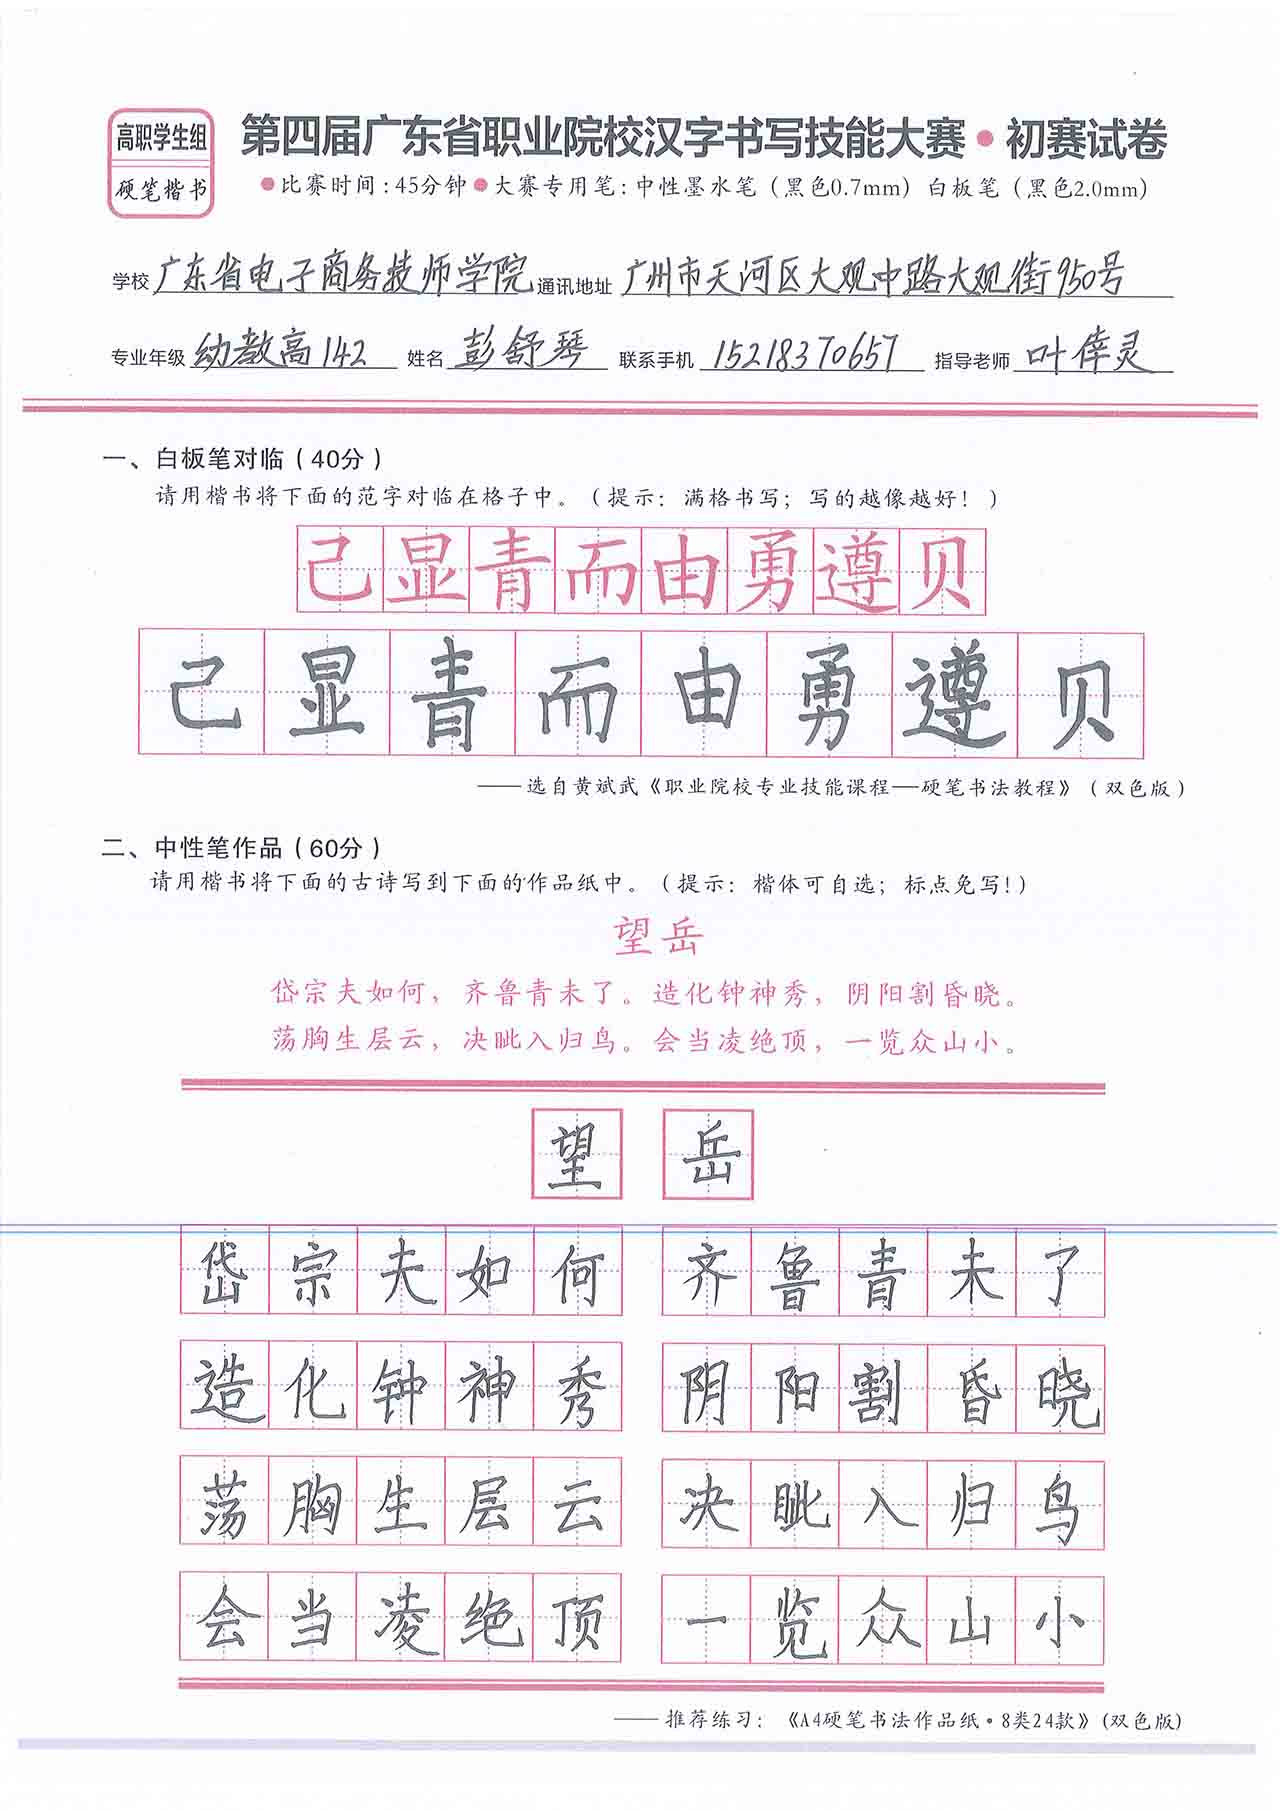 高职学生组
硬笔楷书
第四届广东省职业院校汉字书写技能大赛·初赛试卷
●比赛时间：45分钟●大赛专用笔：中性墨水笔（黑色0.7mm）白板笔（黑色2.0mm）
学校 广东省电子商务技师学院 通讯地址 广州市天河区大观中路大观街950号
专业年级 幼教高142 姓名 彭舒琴 联系手机 15218370657 指导老师 叶倖灵
一、白板笔对临（40分）
请用楷书将下面的范字对临在格子中。（提示：满格书写；写的越像越好！）
己显青而由勇遵贝
己显青而由勇遵贝
——选自黄斌武《职业院校专业技能课程—硬笔书法教程》（双色版）
二、中性笔作品（60分）
请用楷书将下面的古诗写到下面的作品纸中。（提示：楷体可自选；标点免写！）
望岳
岱宗夫如何，齐鲁青未了。造化钟神秀，阴阳割昏晓。
荡胸生层云，决眦入归鸟。会当凌绝顶，一览众山小。
望岳
岱宗夫如何 齐鲁青未了
造化钟神秀 阴阳割昏晓
荡胸生层云 决眦入归鸟
会当凌绝顶 一览众山小
——推荐练习：《A4硬笔书法作品纸·8类24款》（双色版）